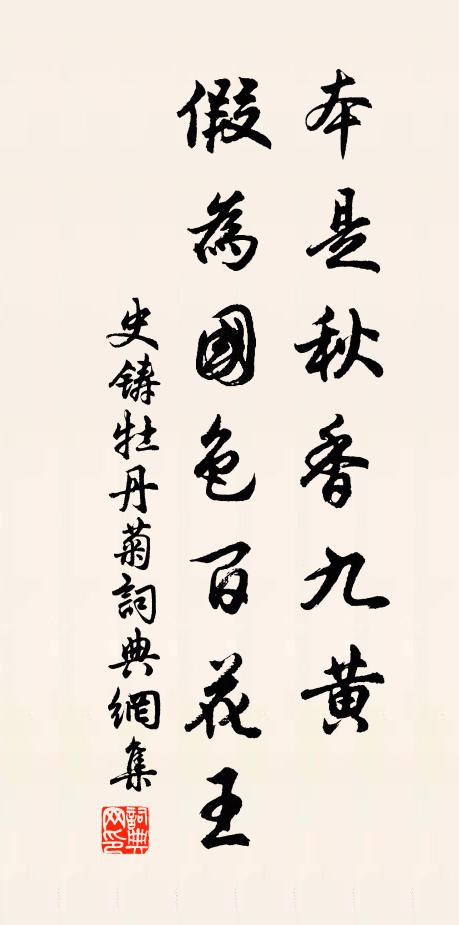 本是秋香九黄
假為國色百花王
史鑄牡丹菊詞典網集
詞典网印